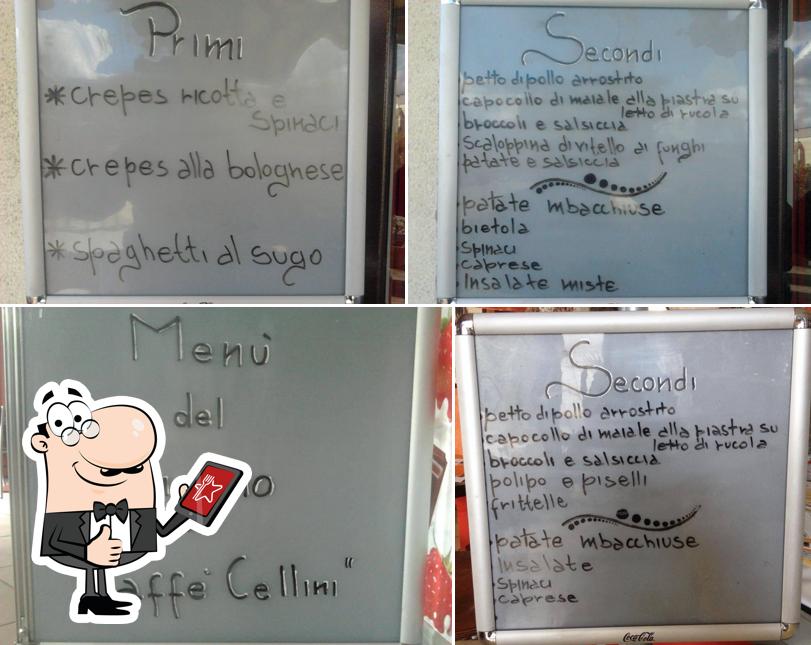 Primi
*crepes ricotta e
Spinaci
*crepes alla bolognese
*spaghetti al sugo
Secondi
petto di pollo arrostito
capocollo di maiale alla piastra su
letto di rucola
broccoli e salsiccia
Scaloppina di vitello ai funghi
patate e salsiccia
patate mbacchiuse
bietola
Spinaci
caprese
Insalate miste
Menù
del
Caffè Cellini"
Secondi
petto di pollo arrostito
capocollo di maiale alla piastra su
letto di rucola
broccoli e salsiccia
polipo e piselli
frittelle
patate mbacchiuse
Insalate
Spinaci
caprese
Coca-Cola